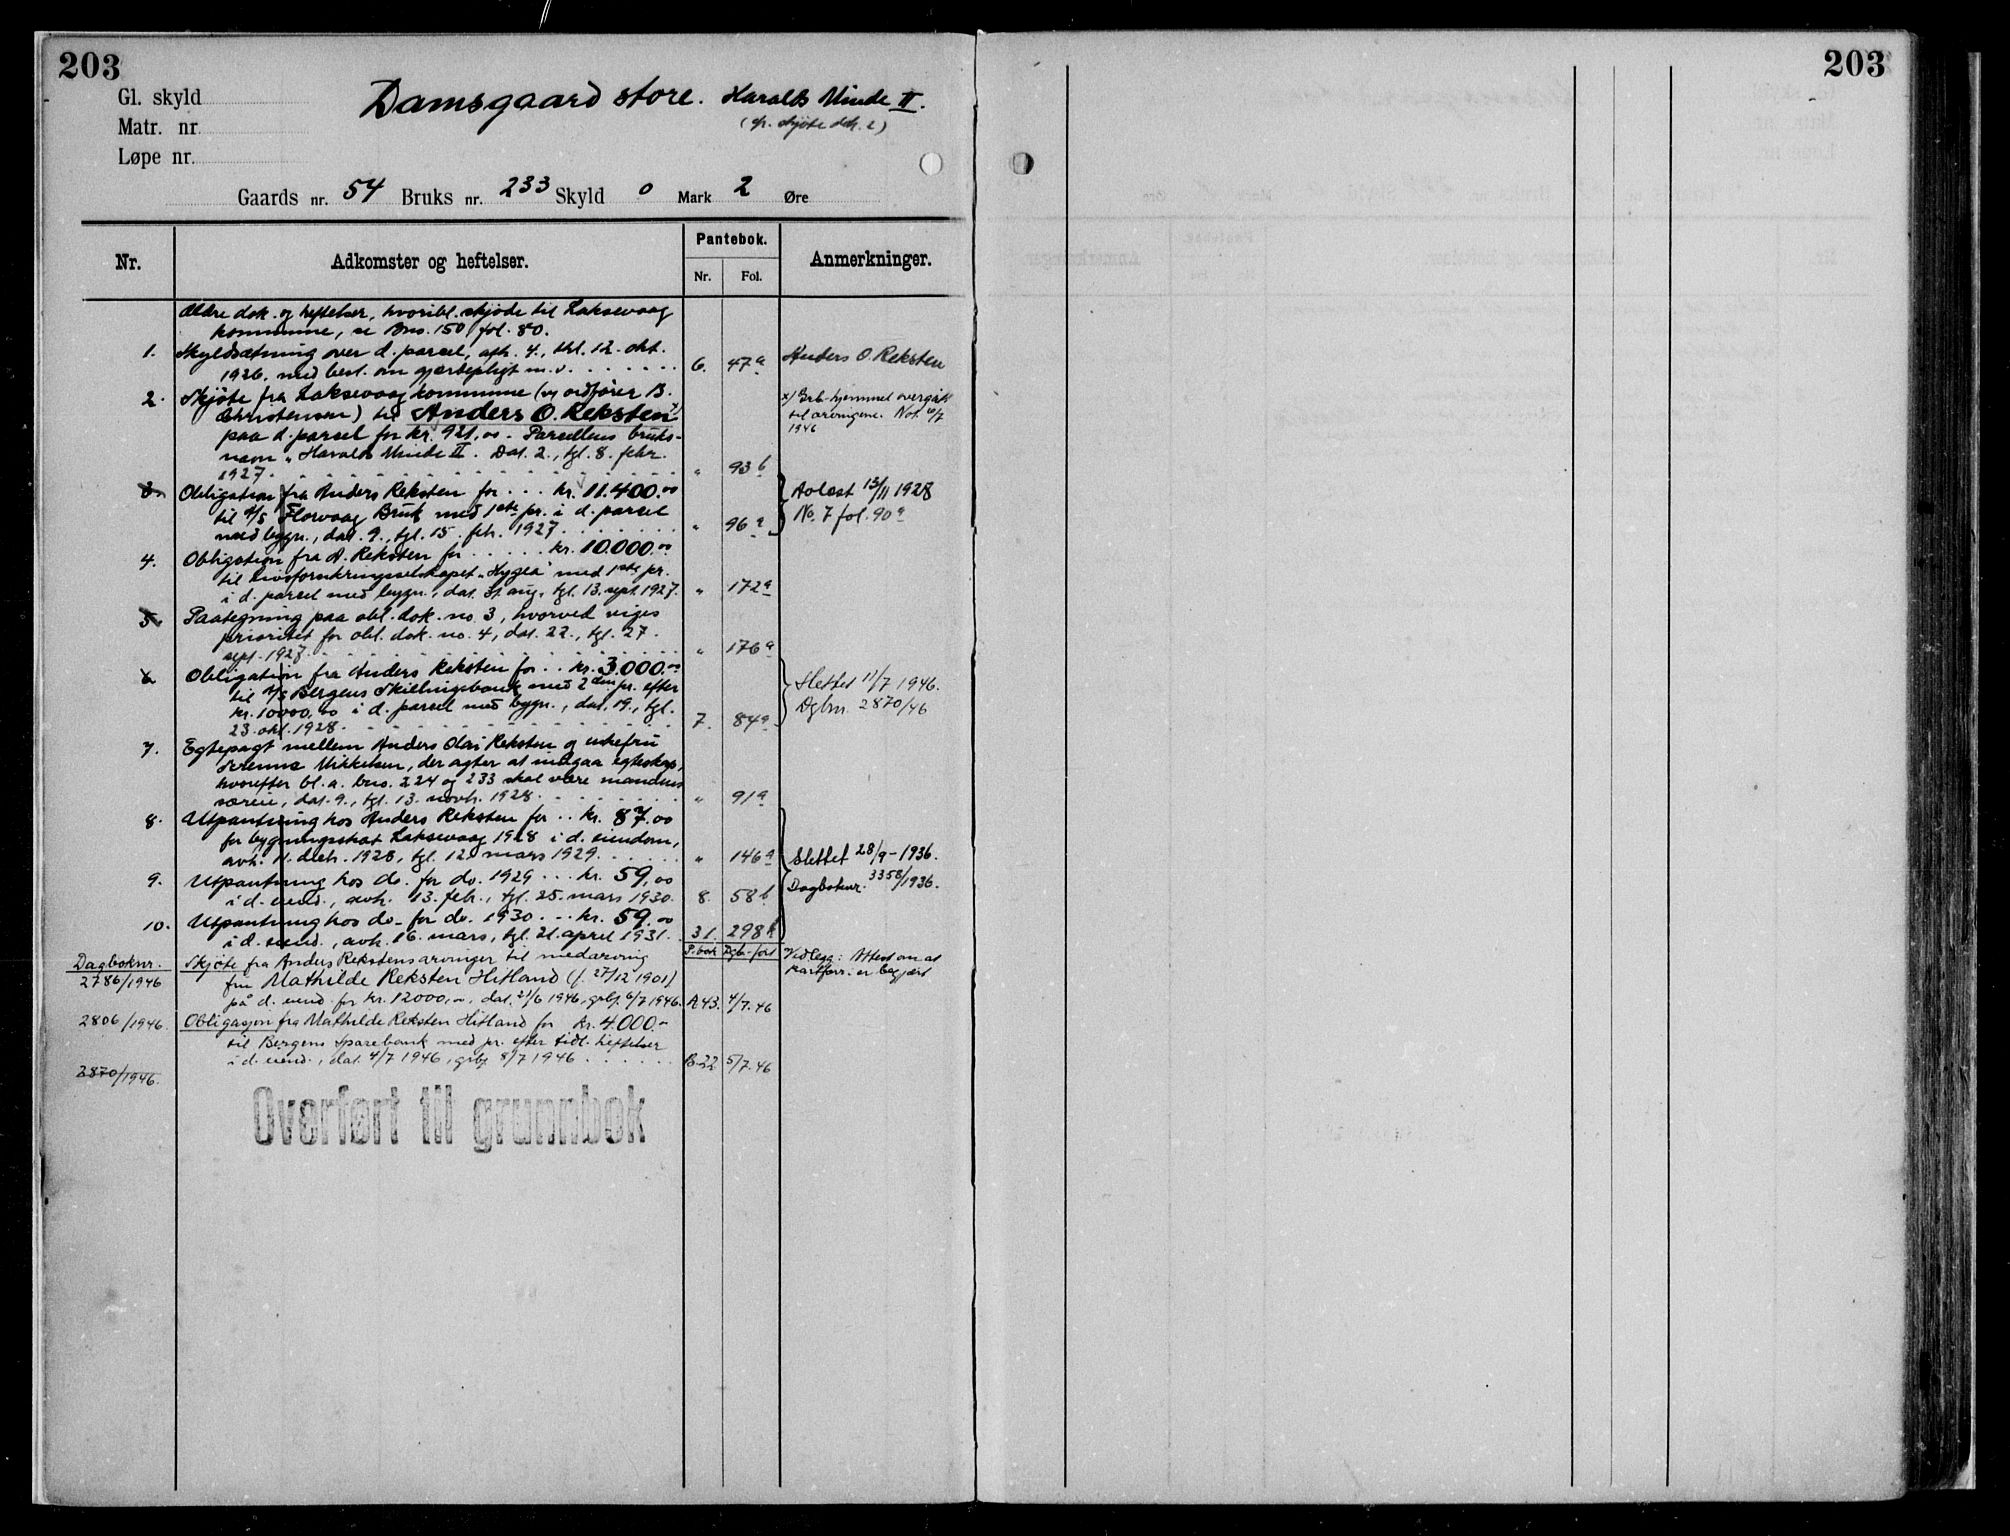 203
203
Gl. skyld
Matr. nr.
Løpe nr.
Damsgaard store. Haralds Minde II.
(cfr. skjöte dok. 2)
Gaards nr. 54 Bruks nr. 233 Skyld 0 Mark 2 Øre
Nr.
Adkomster og heftelser.
Pantebok.
Nr.
Fol.
Anmerkninger.
Ældre dok. og heftelser, hvoribl. skjöde til Laksevaag
kommune, se Bno. 150 fol. 80.
1. Skyldsætning over d. parcel, afh. 4., tgl. 12. okt.
1926, med best. om gjærdepligt m.v. 6. 47a Anders O. Reksten
2. Skjöte fra Laksevaag kommune (v/ ordförer B.
Christensen) til Anders O. Reksten x)
paa d. parcel for kr. 921,00. Parcellens bruks-
navn "Haralds Minde II". Dat. 2., tgl. 8. febr.
1927. " 93b
x) Grb-hjemmel overgått
til arvingene. Not. 6/7
1946
3. Obligation fra Anders Reksten for ... kr. 11.400.00
til A/S Florvaag Bruk med 1ste pr. i d. parcel
med bygn., dat. 9., tgl. 15. febr. 1927. " 96a
Avlæst 13/11 1928
No. 7 fol. 90a
4. Obligation fra A. Reksten for ..... kr. 10.000.00
til Livsforsikringsselskapet "Hygea" med 1ste pr.
i d. parcel med bygn., dat. 31. aug., tgl. 13. sept. 1927. " 172a
5. Paategning paa obl. dok. no. 3, hvorved viges
prioritet for obl. dok. no. 4, dat. 22., tgl. 27.
sept. 1927. " 176a
6. Obligation fra Anders Reksten for .. kr. 3.000.00
til A/S Bergens Skillingsbank med 2den pr. efter
kr. 10000,00 i d. parcel med bygn., dat. 19., tgl.
23. okt. 1928. 7. 84a
Slettet 11/7 1946.
Dgbnr. 2870/46
7. Egtepagt mellem Anders Olai Reksten og enkefru
Mikkelsen, der agter at indgaa egteskap,
hvorefter bl.a. bno. 224 og 233 skal være mandens
særeie, dat. 9., tgl. 13. novb. 1928. " 91a
8. Utpantning hos Anders Reksten for .. kr. 87.00
for bygningsskat Laksevaag 1928 i d. eiendom,
avh. 11. decb. 1928, tgl. 12. mars 1929. " 146a
Slettet 28/9-1936.
9. Utpantning hos do. for do. 1929 ... kr. 59,00
i d. eiend., avh. 13. febr., tgl. 25. mars 1930. 8. 58b
Dagboknr. 3358/1936.
10. Utpantning hos do. for do. 1930 ... kr. 59.00
i d. eiend., avh. 16. mars, tgl. 21. april 1931. 31. 298
P.bok Dgb-ført
Dagboknr.
2786/1946
Skjöte fra Anders Rekstens arvinger til medarving
fru Mathilde Reksten Hitland (f. 27/12 1901)
på d. eiend. for kr. 12000,00, dat. 21/6 1946, grbf. 6/7 1946. A43. 4/7.46
Vedlegg: Attest om at
kartforr. er begjært
2806/1946. Obligasjon fra Mathilde Reksten Hitland for kr. 4.000.-
til Bergens Sparebank med pr. efter tidl. heftelser
i d. eiend., dat. 4/7 1946, grbf. 8/7 1946 B-22 5/7.46
2870/1946.
Overført til grunnbok